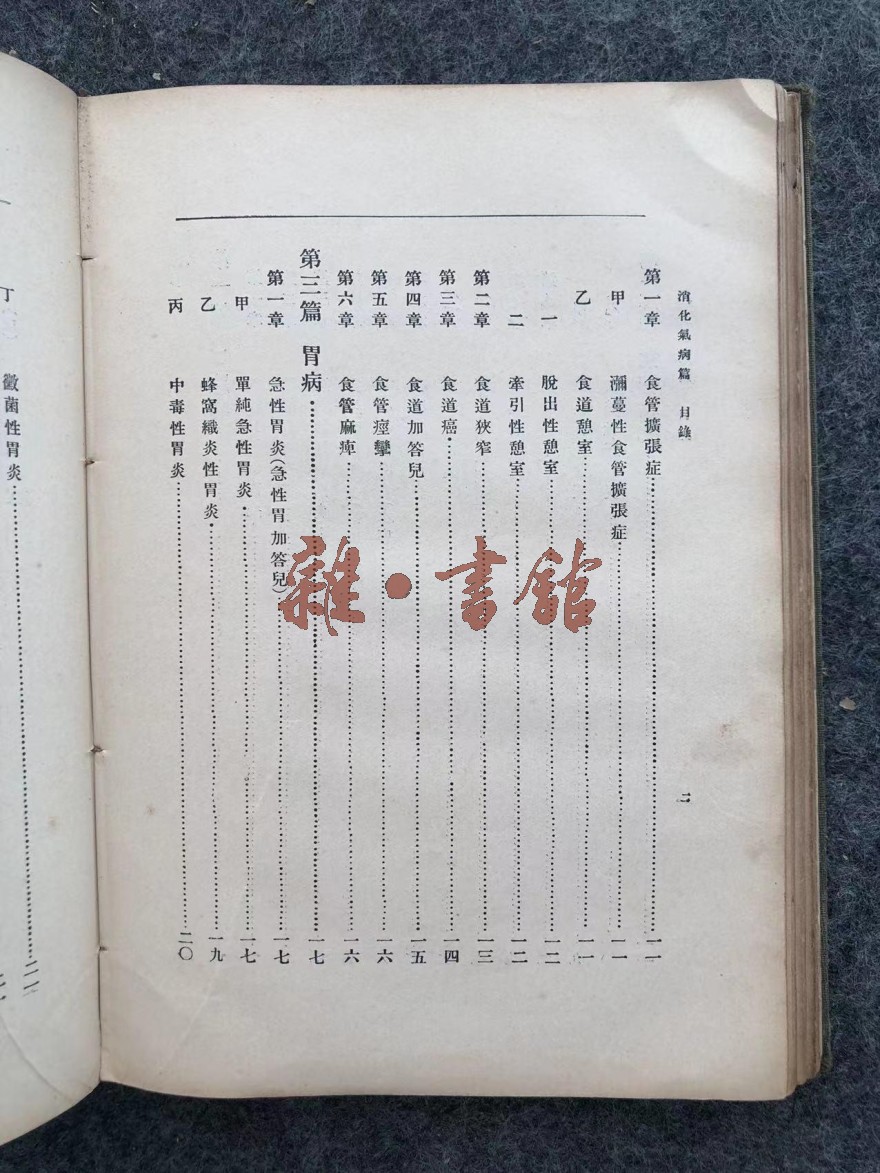 消化氣病篇 目錄
二
第一章 食管擴張症 一一
甲 瀰蔓性食管擴張症 一一
乙 食道憩室 一一
一 脫出性憩室 一二
二 牽引性憩室 一二
第二章 食道狹窄 一三
第三章 食道癌 一四
第四章 食道加答兒 一五
第五章 食管痙攣 一六
第六章 食管麻痺 一六
第三篇 胃病 一七
第一章 急性胃炎(急性胃加答兒) 一七
甲 單純急性胃炎 一七
乙 蜂窩織炎性胃炎 一九
丙 中毒性胃炎 二〇
丁 黴菌性胃炎
雜·書館